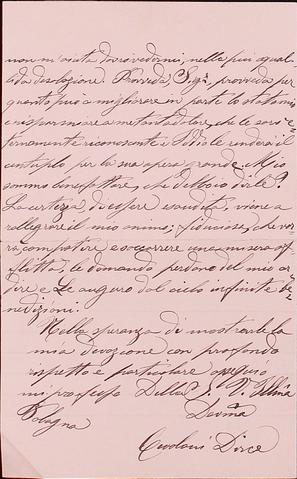 non m'aiuta dovrò vedermi, nella più squal-
lida desolazione Provveda, Sig.r, provveda per
quanto può a migliorare in parte lo stato mio
e risparmiare a me tanto dolore, che le sarò e-
ternamente riconoscente e Iddio le renderà il
centuplo per la sua opera grande. Mio
sommo benefattore, che debbo io dirle?
La certezza, di essere esaudita, viene a
rallegrare il mio animo; fiduciosa, che vor-
rà, compatire, e soccorrere una misera af-
flitta, le domando perdono del mio ar-
dire e Le auguro dal cielo infinite be-
nedizioni.
Nella speranza di mostrarle la
mia devozione con profondo
rispetto e particolare ossequio
mi professo Della S. V. Ill.ma
Dev.ma
Bologna
Dirce